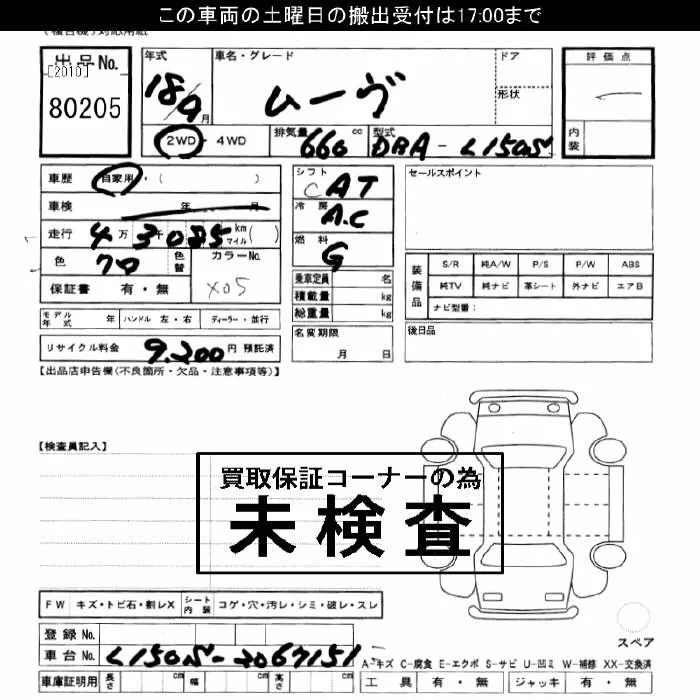 この車両の土曜日の搬出受付は17:00まで
出品No.
[2010]
80205
年式 18/9月
車名・グレード ムーヴ
ドア
形状
評価点
内装
2WD・4WD
排気量 660 cc
型式 DBA-L150S
車歴 自家用・( )
車検 年 月
走行 4万3千085km マイル ( )
色 クロ 色替 カラーNo. X05
保証書 有・無
シフト CAT
冷房 A.C
燃料 G
乗車定員 名
積載量 kg
総重量 kg
セールスポイント
装備品 S/R 純A/W P/S P/W ABS
純TV 純ナビ 革シート 外ナビ エアB
ナビ型番:
モデル年式 年 ハンドル 左・右 ディーラー・並行
名変期限 月 日
後日品
リサイクル料金 9.200円 預託済
【出品店申告欄(不良箇所・欠品・注意事項等)】
【検査員記入】
買取保証コーナーの為
未検査
FW キズ・トビ石・割レX シート内装 コゲ・穴・汚レ・シミ・破レ・スレ
登録No.
車台No. L150S-2067151
スペア
A-キズ C-腐食 E-エクボ S-サビ U-凹ミ W-補修 XX-交換済
車庫証明用 長さ cm 幅 cm 高さ cm
工具 有・無 ジャッキ 有・無